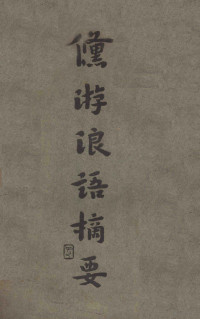 游浪語摘要